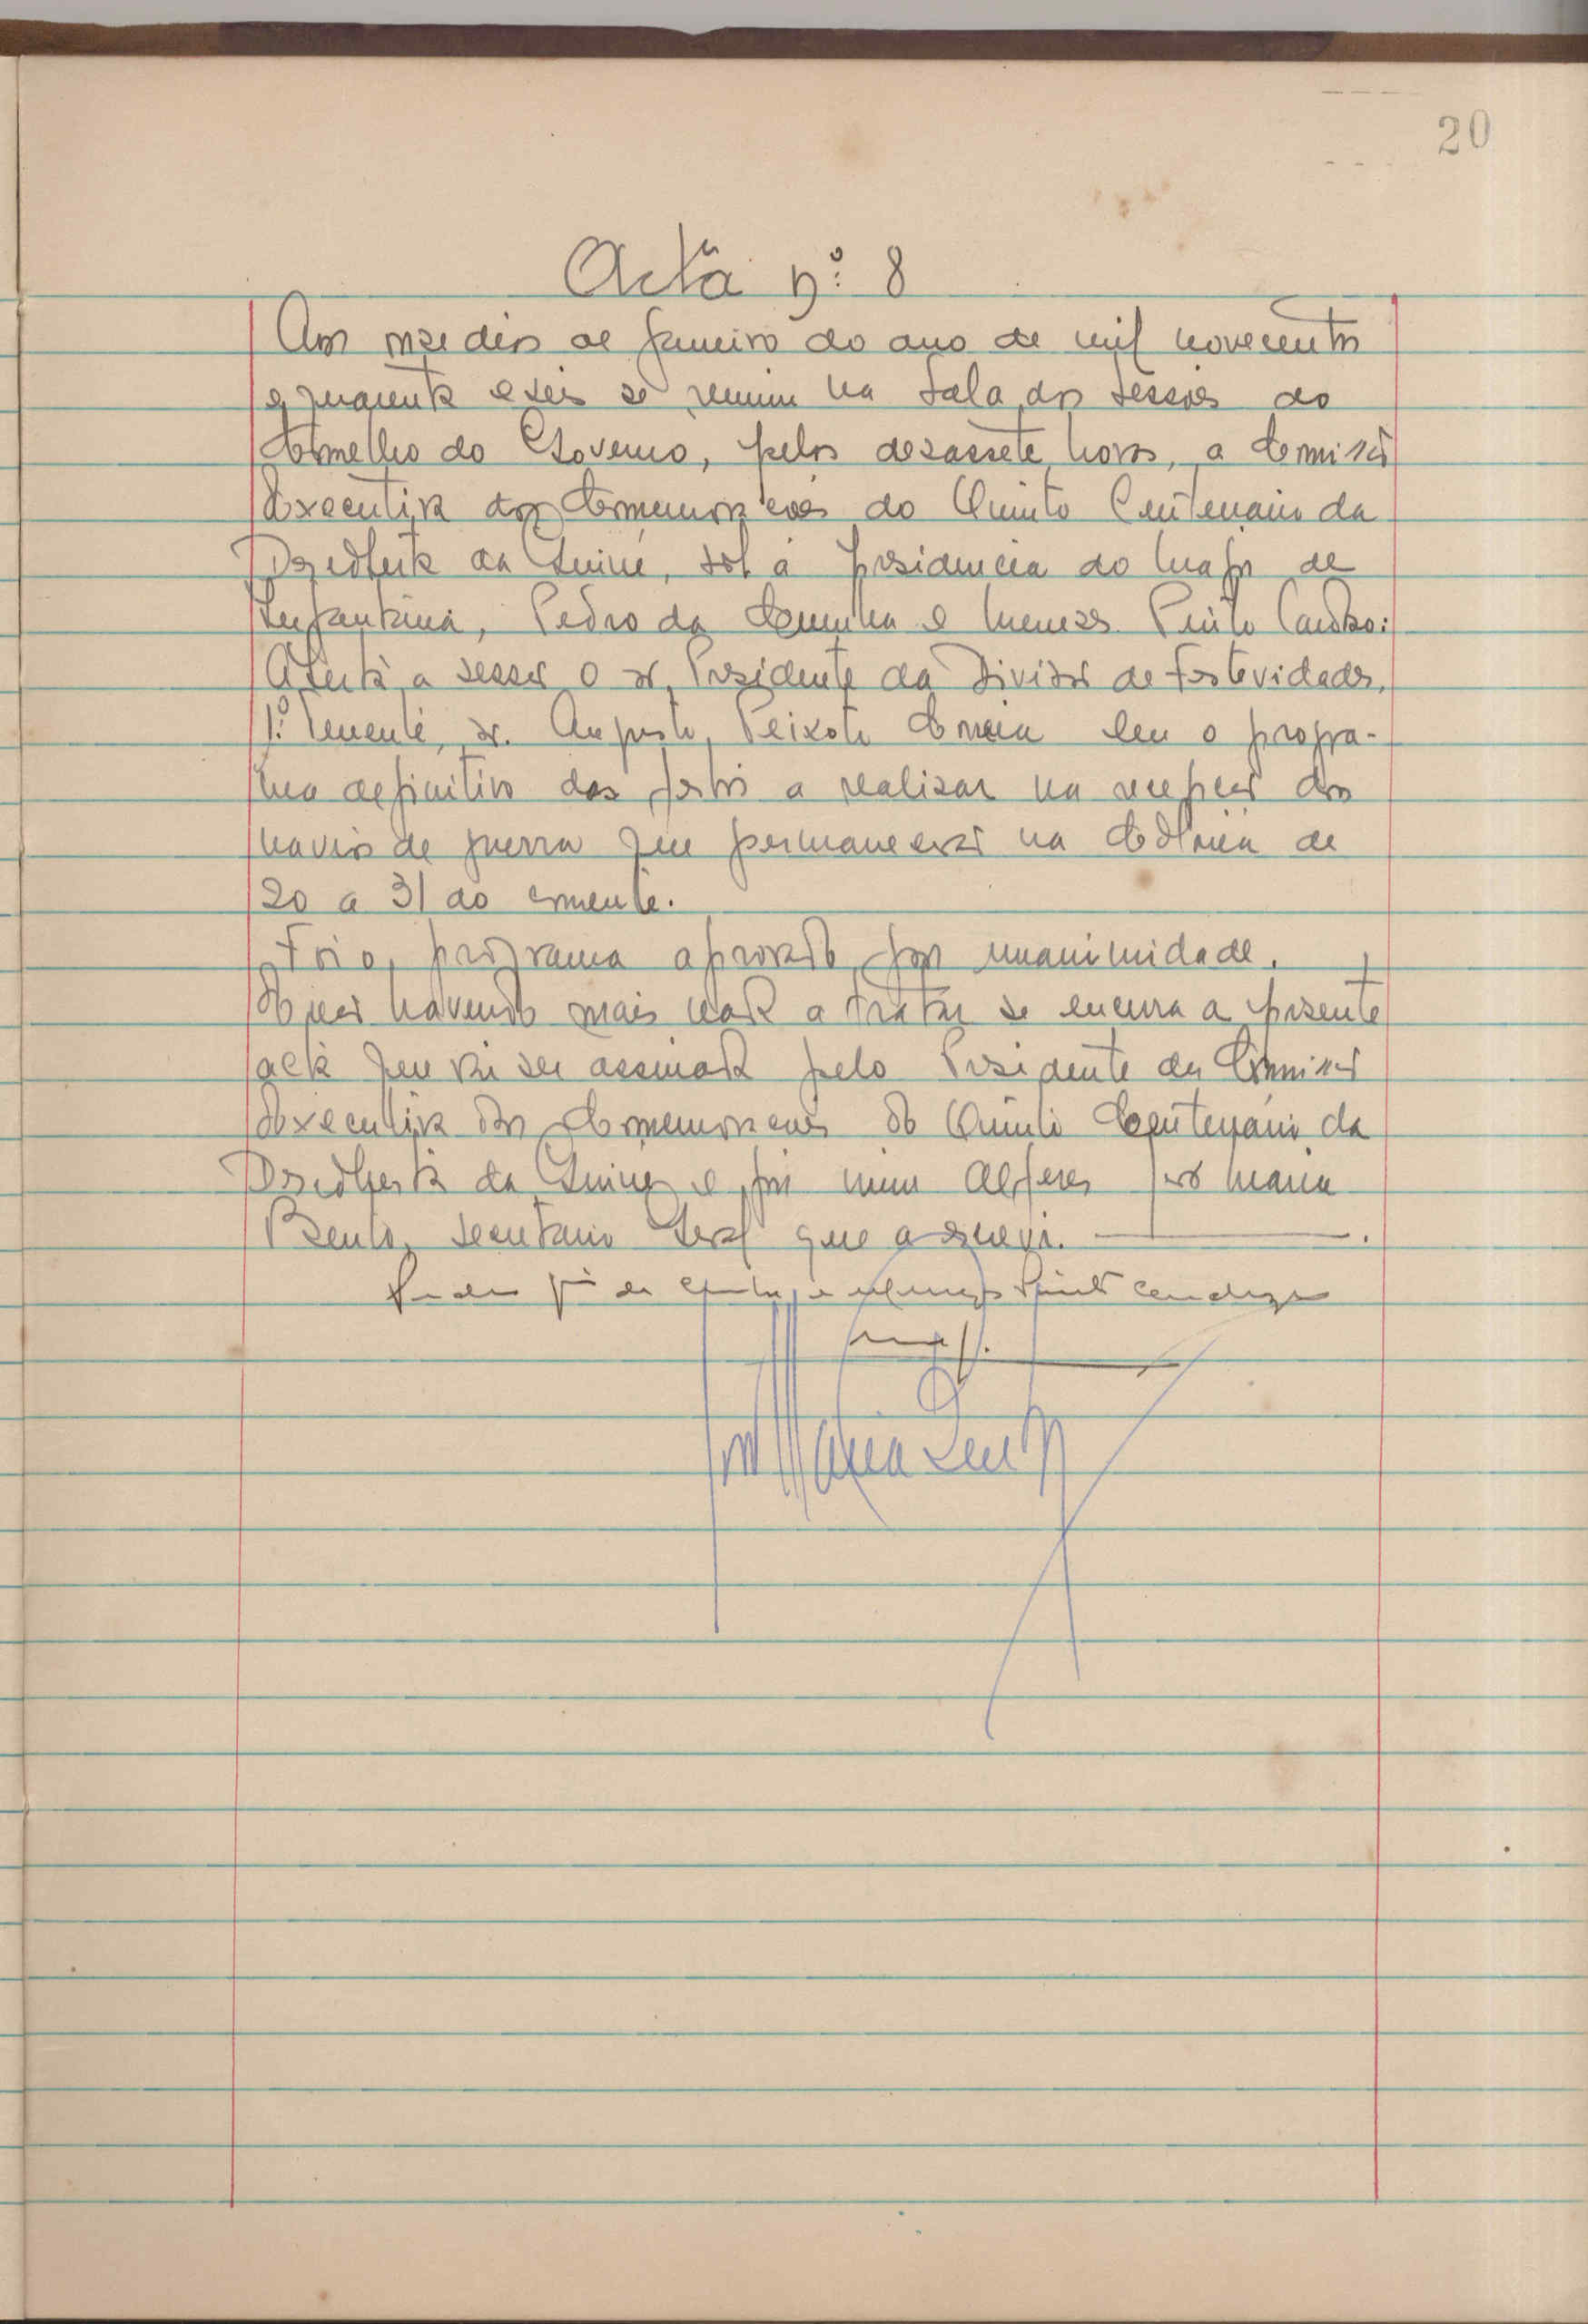 20
Acta nº 8
Aos onze dias de Janeiro do ano de mil novecentos
e quarenta e seis se reuniu na Sala das Sessões do
Conselho do Governo, pelas dezassete horas, a Comissão
Executiva das Comemorações do Quinto Centenário da
Descoberta da Guiné, sob a presidência do Major de
Infantaria, Pedro da Cunha e Meneses Pinto Cardoso:
Aberta a sessão o sr. Presidente da Divisão de Festividades,
1º Tenente, sr. Augusto Peixoto Correia leu o progra-
ma definitivo das festas a realizar na recepção dos
navios de guerra que permanecerão na Colónia de
20 a 31 do corrente.
Foi o programa aprovado por unanimidade.
E não havendo mais nada a tratar se encerra a presente
acta que vai ser assinada pelo Presidente da Comissão
Executiva das Comemorações do Quinto Centenário da
Descoberta da Guiné e por mim Alferes José Maria
Bento, secretário Geral que a escrevi.
Pedro da Cunha e Meneses Pinto Cardoso
maj.
José Maria Bento